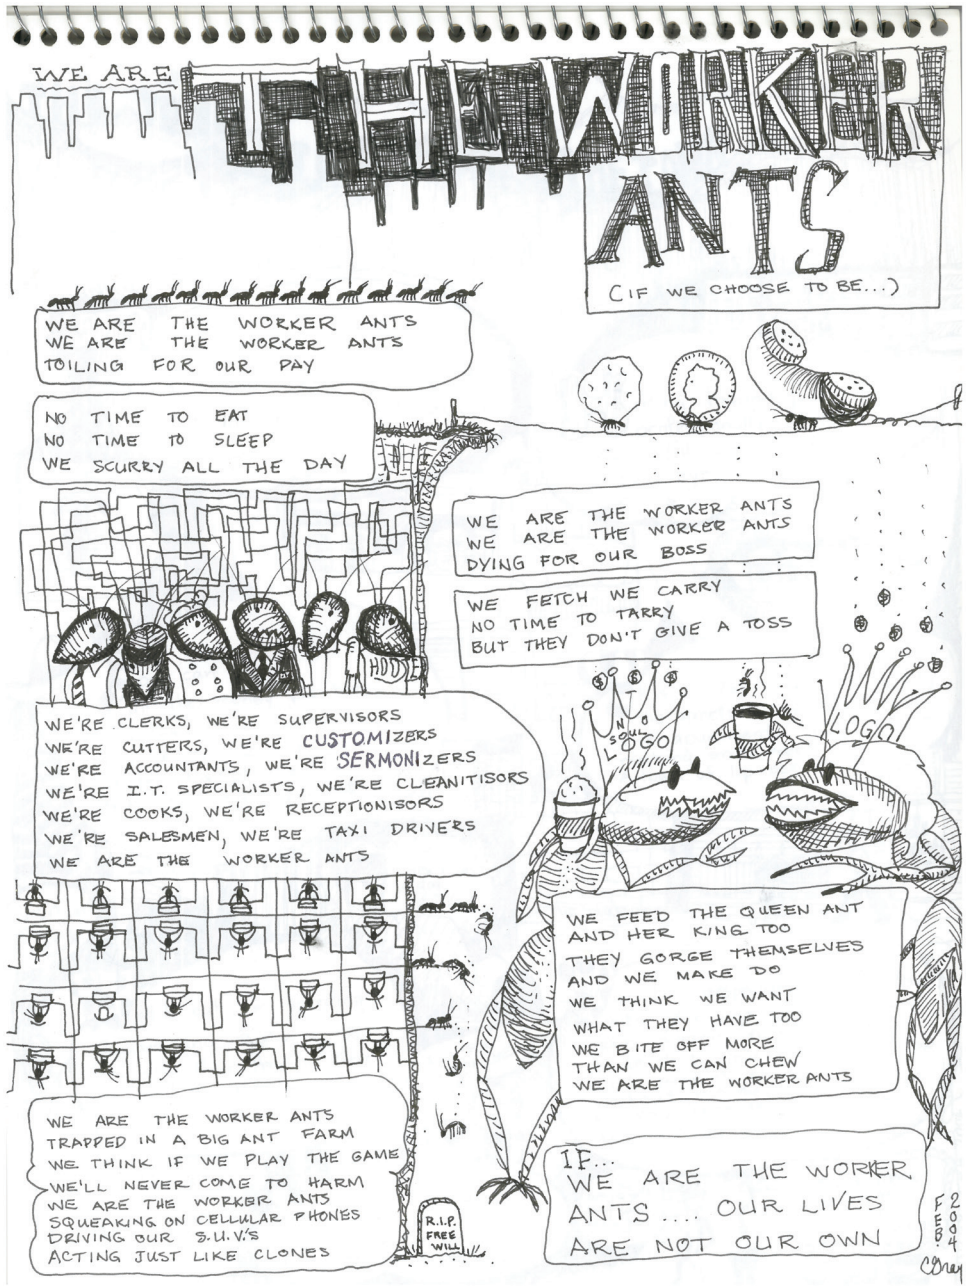 WE ARE
THE WORKER
ANTS
(IF WE CHOOSE TO BE...)
WE ARE THE WORKER ANTS
WE ARE THE WORKER ANTS
TOILING FOR OUR PAY
NO TIME TO EAT
NO TIME TO SLEEP
WE SCURRY ALL THE DAY
WE ARE THE WORKER ANTS
WE ARE THE WORKER ANTS
DYING FOR OUR BOSS
WE FETCH WE CARRY
NO TIME TO TARRY
BUT THEY DON'T GIVE A TOSS
WE'RE CLERKS, WE'RE SUPERVISORS
WE'RE CUTTERS, WE'RE CUSTOMIZERS
WE'RE ACCOUNTANTS, WE'RE SERMONIZERS
WE'RE I.T. SPECIALISTS, WE'RE CLEANITISORS
WE'RE COOKS, WE'RE RECEPTIONISORS
WE'RE SALESMEN, WE'RE TAXI DRIVERS
WE ARE THE WORKER ANTS
NO
SOUL
LOGO
LOGO
WE FEED THE QUEEN ANT
AND HER KING TOO
THEY GORGE THEMSELVES
AND WE MAKE DO
WE THINK WE WANT
WHAT THEY HAVE TOO
WE BITE OFF MORE
THAN WE CAN CHEW
WE ARE THE WORKER ANTS
WE ARE THE WORKER ANTS
TRAPPED IN A BIG ANT FARM
WE THINK IF WE PLAY THE GAME
WE'LL NEVER COME TO HARM
WE ARE THE WORKER ANTS
SQUEAKING ON CELLULAR PHONES
DRIVING OUR S.U.V.'S
ACTING JUST LIKE CLONES
R.I.P.
FREE
WILL
IF...
WE ARE THE WORKER
ANTS.... OUR LIVES
ARE NOT OUR OWN
FEB. 2004